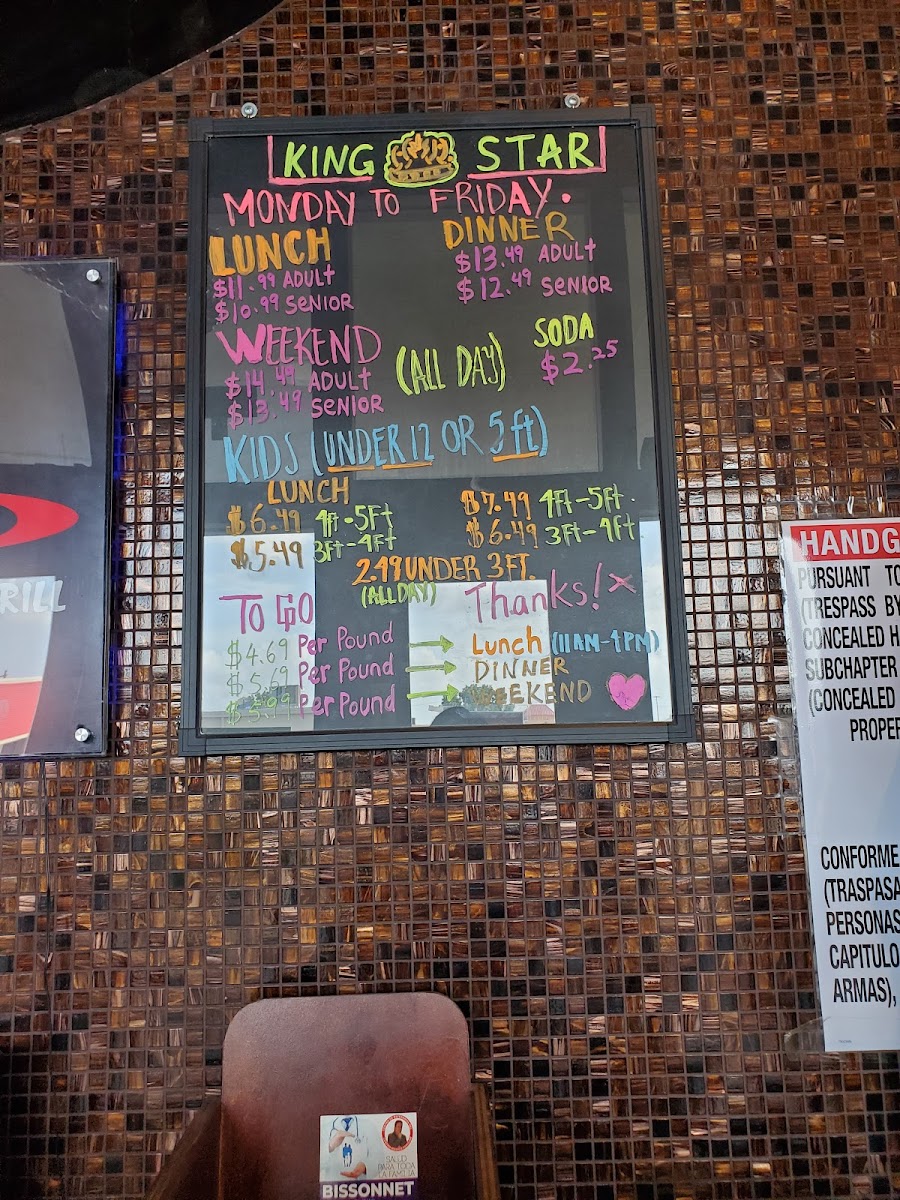 KING STAR
MONDAY TO FRIDAY.
LUNCH
$11.99 ADULT
$10.99 SENIOR
DINNER
$13.49 ADULT
$12.49 SENIOR
WEEKEND (ALL DAY)
$14.49 ADULT
$13.49 SENIOR
SODA
$2.25
KIDS (UNDER 12 OR 5ft)
LUNCH
$6.49 4ft-5Ft
$5.49 3Ft-4Ft
$7.49 4Ft-5Ft.
$6.49 3Ft-4Ft
2.49 UNDER 3FT.
(ALL DAY)
Thanks!
TO GO
$4.69 Per Pound → Lunch (11AM-4PM)
$5.69 Per Pound → DINNER
Per Pound → WEEKEND
RILL
HANDG
PURSUANT TO
(TRESPASS BY
CONCEALED H
SUBCHAPTER
(CONCEALED
PROPER
CONFORME
(TRASPASA
PERSONAS
CAPITULO
ARMAS),
SALUD
PARA TODA
LA FAMILIA
BISSONNET